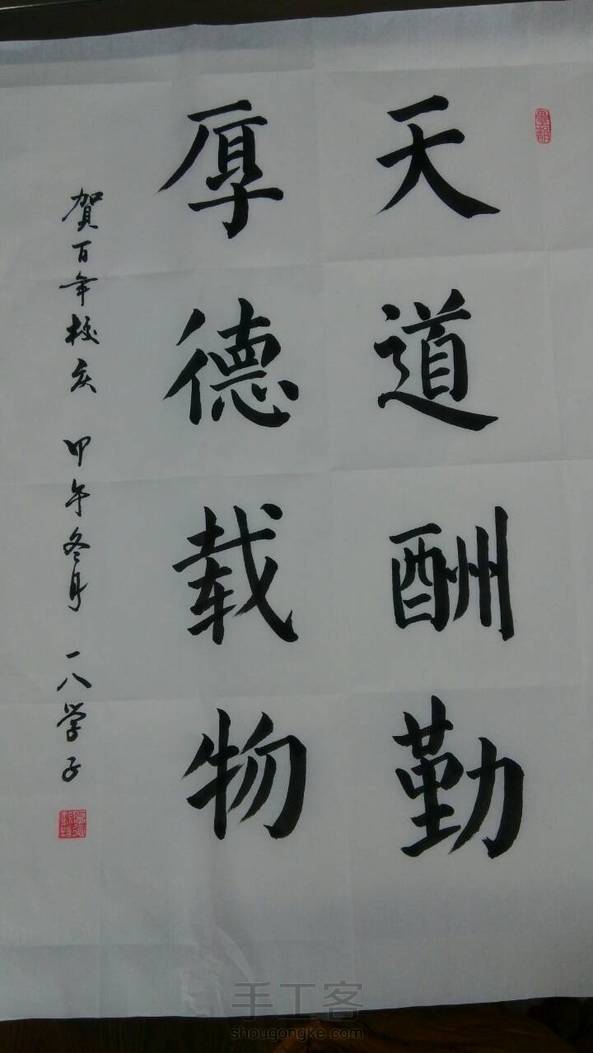 天道酬勤
厚德载物
賀百年校庆 甲午冬月 一八学子
手工客
shougongke.com